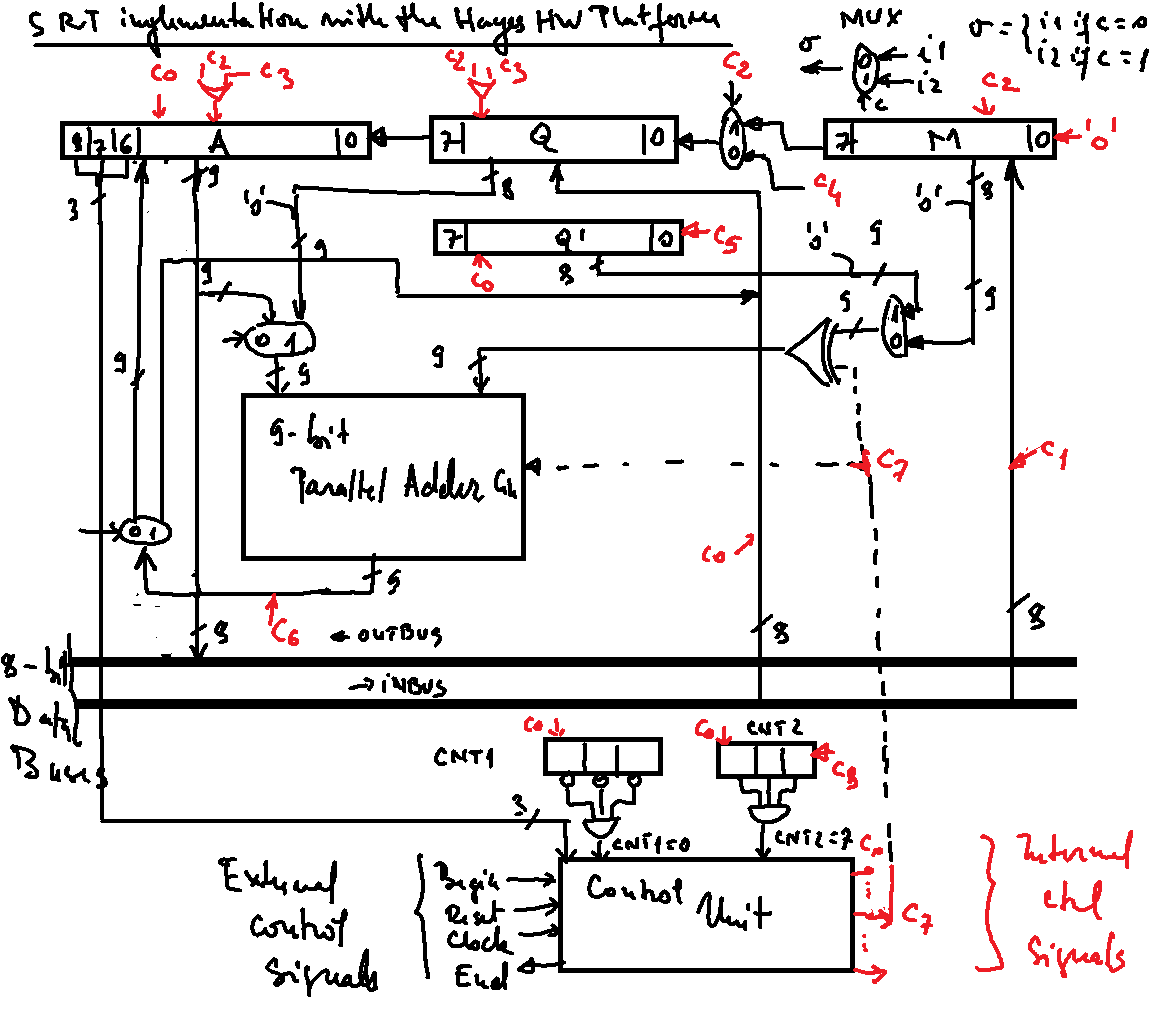 SRT implementation with the Hayes HW Platform
MUX
σ = { i1 if c=0
i2 if c=1
σ
0
1
i1
i2
c
c0
c2
c3
c2
c3
c2
c2
8 7 6
A
0
7
Q
0
1
0
7
M
0
'0'
c4
3
9
8
'0'
8
'0'
7
Q'
0
c5
c0
8
'0'
9
9
9
9
9
1
0
0 1
9
9
9
9-bit
Parallel Adder
C7
c1
c0
0 1
9
C6
8
← OUTBUS
8
8
8-bit
Data
Buses
→ INBUS
CNT1
c0
c0
CNT2
c8
3
CNT1=0
CNT2=7
c0
External
control
signals
Begin
Reset
Clock
End
Control
Unit
C7
Internal
ctrl
signals